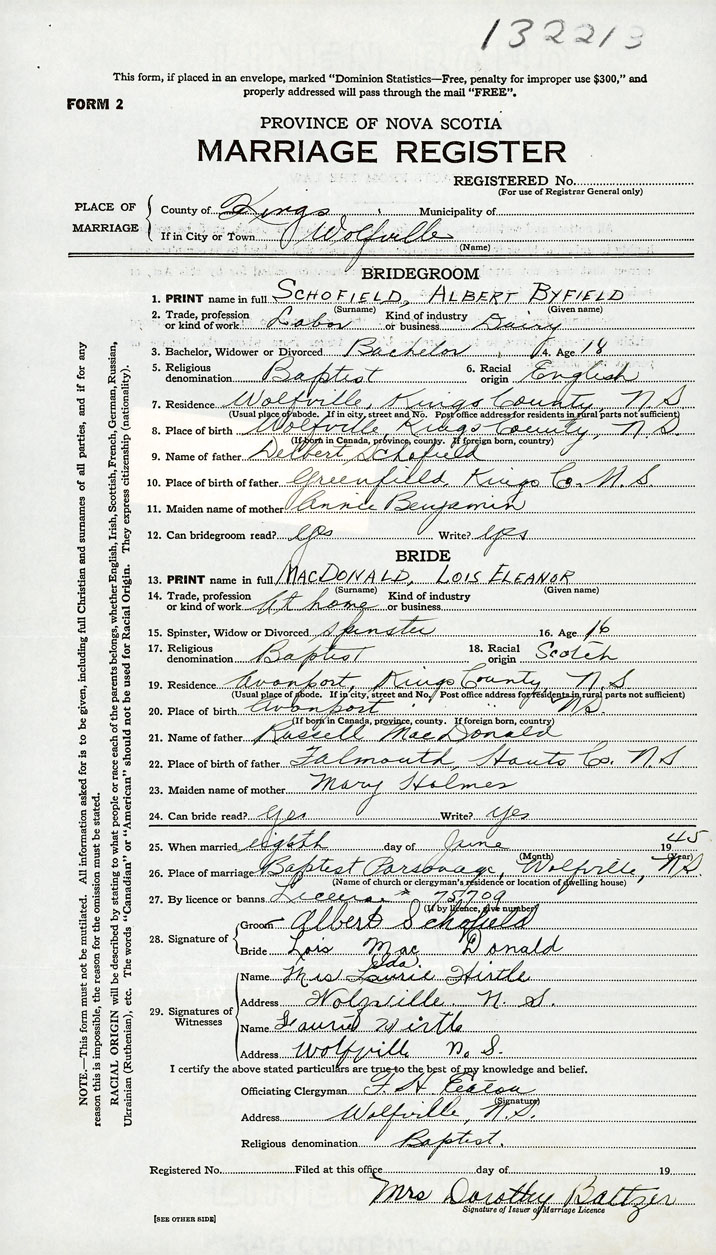 132213
This form, if placed in an envelope, marked "Dominion Statistics—Free, penalty for improper use $300," and
properly addressed will pass through the mail "FREE".
FORM 2
PROVINCE OF NOVA SCOTIA
MARRIAGE REGISTER
REGISTERED No.
(For use of Registrar General only)
PLACE OF MARRIAGE
County of Kings Municipality of
If in City or Town Wolfville
(Name)
BRIDEGROOM
1. PRINT name in full SCHOFIELD, ALBERT BYFIELD
(Surname) (Given name)
2. Trade, profession or kind of work Labor Kind of industry or business Dairy
3. Bachelor, Widower or Divorced Bachelor 4. Age 18
5. Religious denomination Baptist 6. Racial origin English
7. Residence Wolfville, Kings County, N S
(Usual place of abode. If in city, street and No. Post office address for residents in rural parts not sufficient)
8. Place of birth Wolfville, Kings County, N S.
(If born in Canada, province, county. If foreign born, country)
9. Name of father Delbert Schofield
10. Place of birth of father Greenfield, Kings Co. N. S.
11. Maiden name of mother Annie Benjamin
12. Can bridegroom read? yes Write? yes
BRIDE
13. PRINT name in full MACDONALD, LOIS ELEANOR
(Surname) (Given name)
14. Trade, profession or kind of work At home Kind of industry or business
15. Spinster, Widow or Divorced spinster 16. Age 16
17. Religious denomination Baptist 18. Racial origin Scotch
19. Residence Avonport Kings County, N. S
(Usual place of abode. If in city, street and No. Post office address for residents in rural parts not sufficient)
20. Place of birth Avonport " " NS.
(If born in Canada, province, county. If foreign born, country)
21. Name of father Russell MacDonald
22. Place of birth of father Falmouth, Hants Co. N. S
23. Maiden name of mother Mary Holmes
24. Can bride read? yes Write? yes
25. When married eighth day of June 1945
(Month) (Year)
26. Place of marriage Baptist Parsonage, Wolfville, N.S.
(Name of church or clergyman's residence or location of dwelling house)
27. By licence or banns License # 75709
(If by licence, give number)
28. Signature of
Groom Albert Schofield
Bride Lois Mac Donald
29. Signatures of Witnesses
Ida
Name Mrs Laurie Hirtle
Address Wolfville. N. S.
Name Laurie Hirtle
Address Wolfville N. S.
I certify the above stated particulars are true to the best of my knowledge and belief.
Officiating Clergyman F. H Eaton
(Signature)
Address Wolfville, N.S.
Religious denomination Baptist.
Registered No. Filed at this office day of 19
Mrs Dorothy Baltzer
Signature of Issuer of Marriage Licence
[SEE OTHER SIDE]
NOTE.—This form must not be mutilated. All information asked for is to be given, including full Christian and surnames of all parties, and if for any
reason this is impossible, the reason for the omission must be stated.
RACIAL ORIGIN will be described by stating to what people or race each of the parents belongs, whether English, Irish, Scottish, French, German, Russian,
Ukrainian (Ruthenian), etc. The words "Canadian" or "American" should not be used for Racial Origin. They express citizenship (nationality).